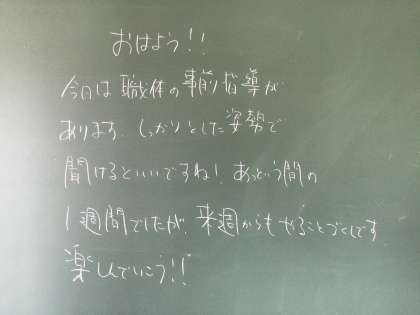 おはよう!!
今日は職体の事前指導が
あります。しっかりとした姿勢で
聞けるといいですね! あっという間の
1週間でしたが、来週からもやることづくしです
楽しんでいこう!!